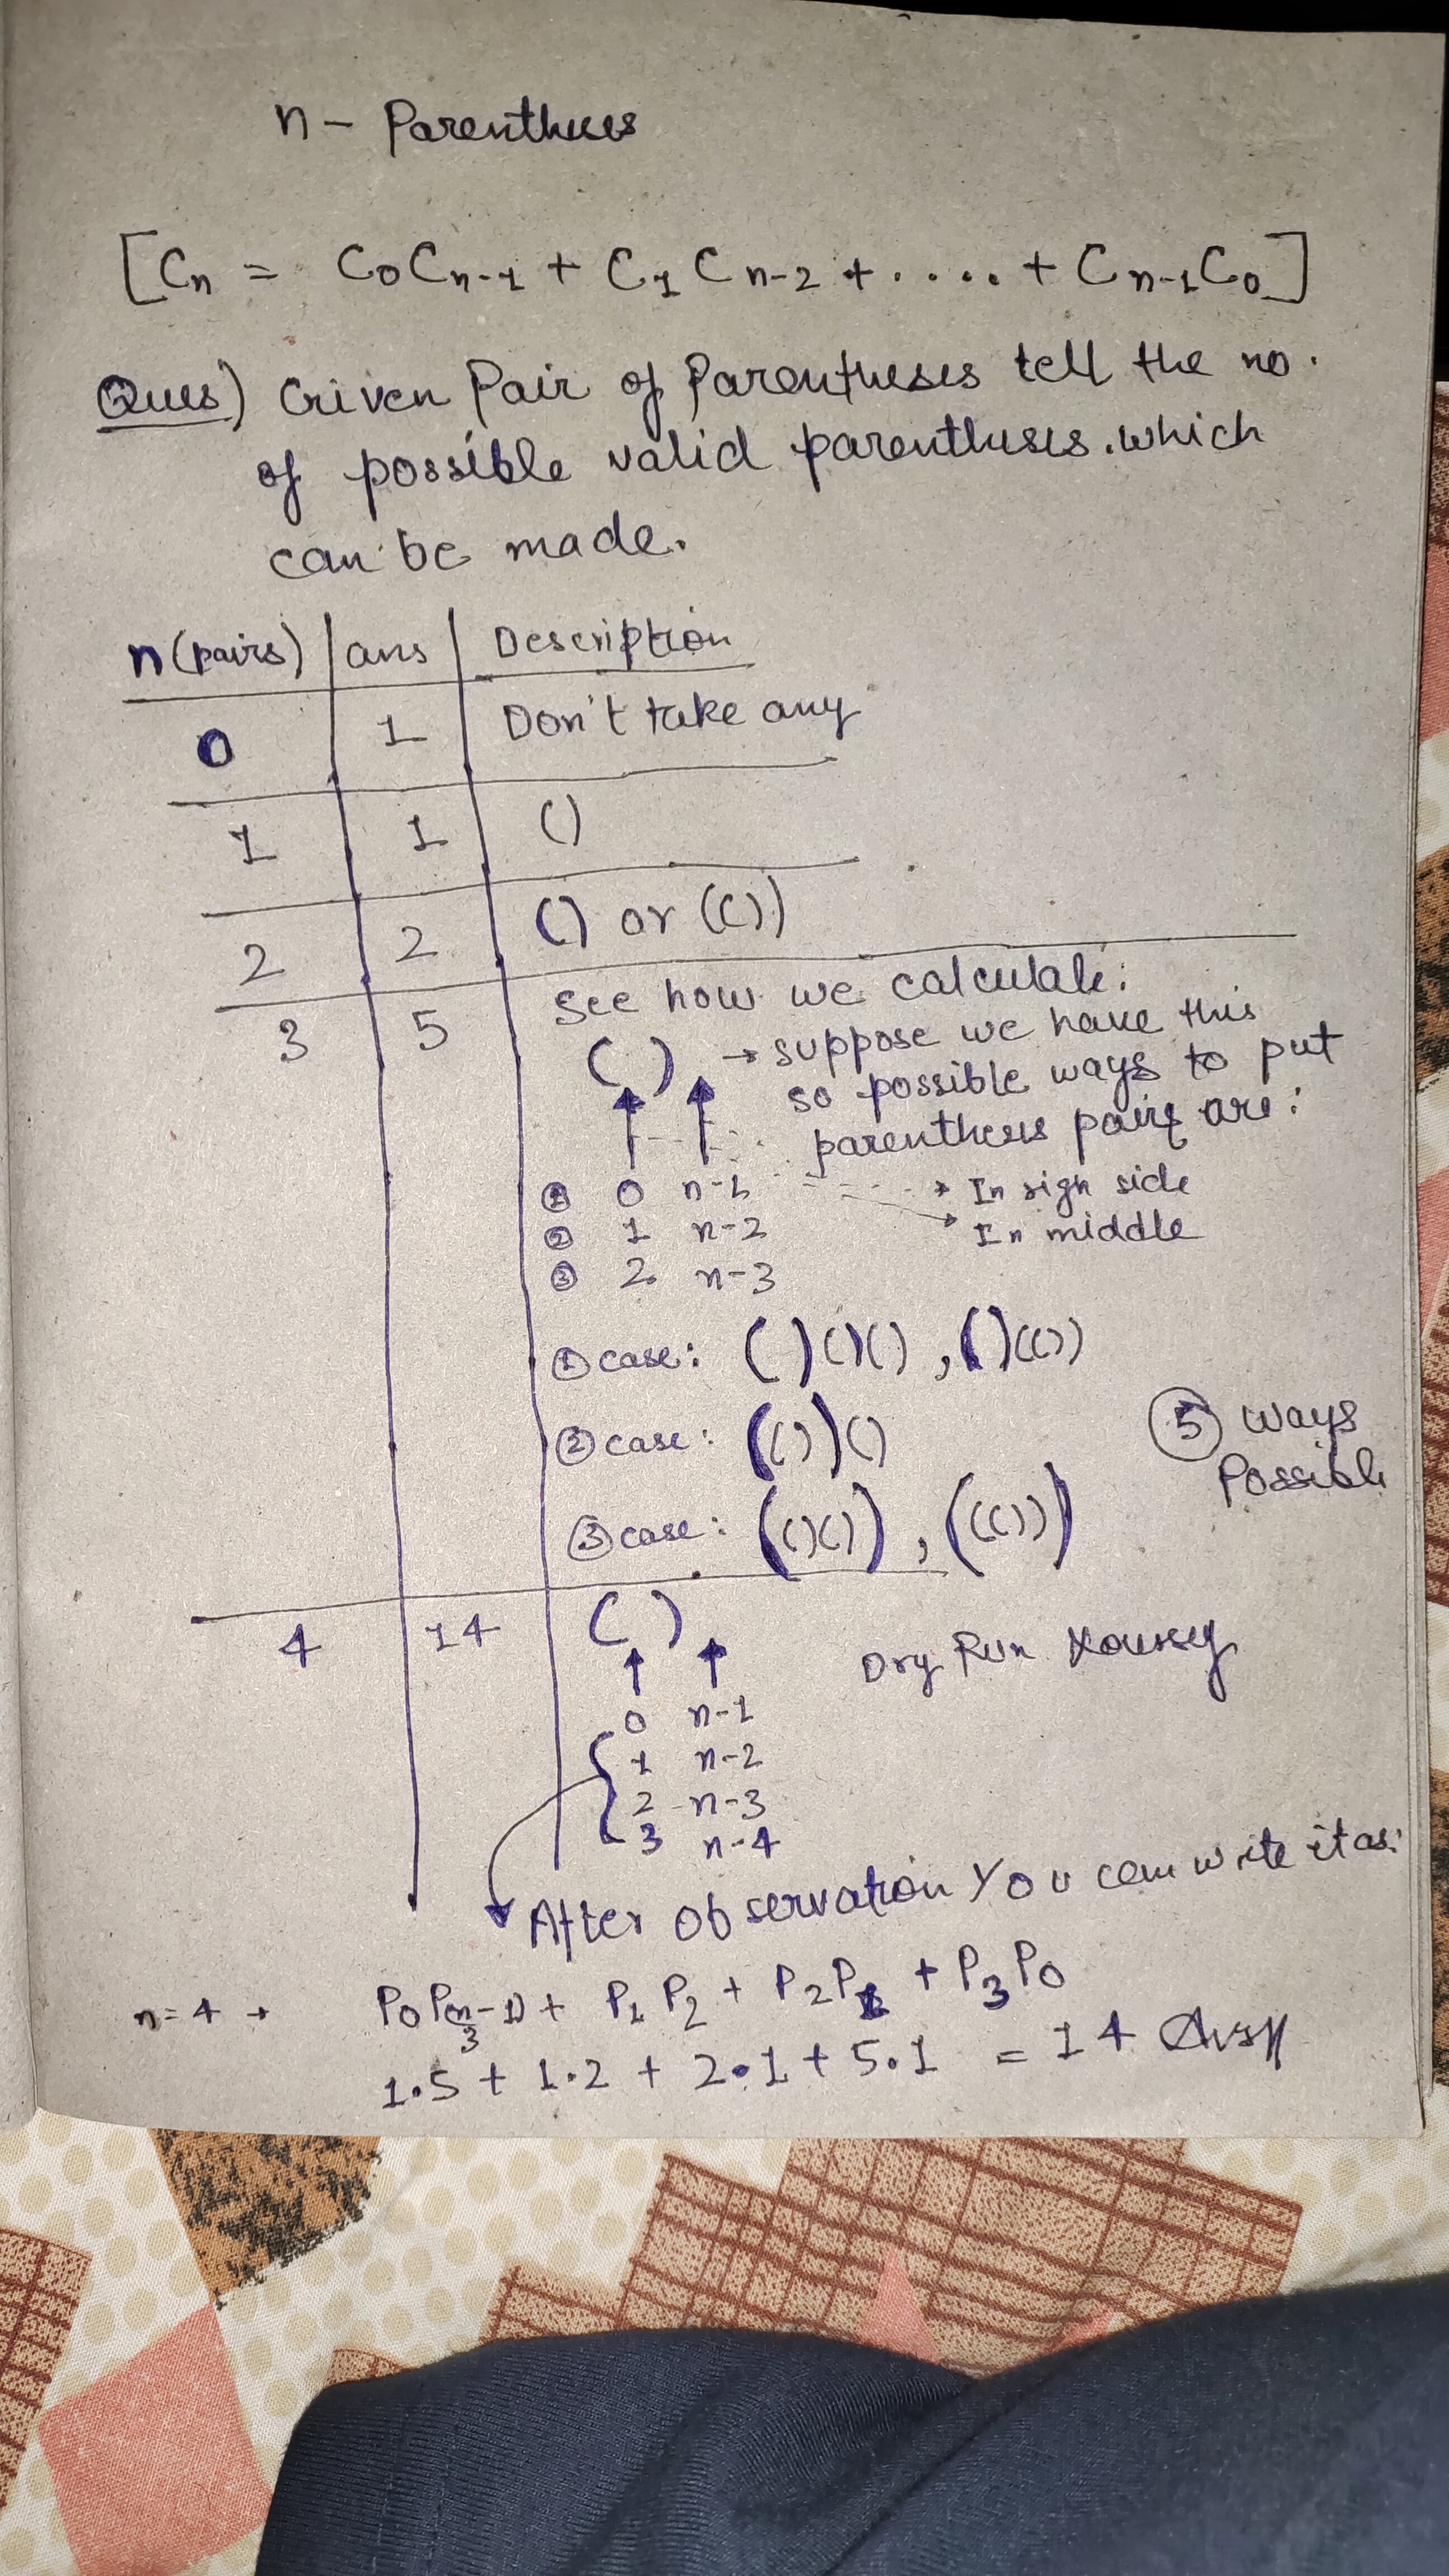 n - Parentheses
[Cn = C0Cn-1 + C1Cn-2 + ..... + Cn-1C0]
Ques) Given Pair of Parentheses tell the no.
of possible valid parentheses. which
can be made.
n(pairs) | ans | Description
0 | 1 | Don't take any
1 | 1 | ()
2 | 2 | () or (())
3 | 5 | See how we calculate:
( ) → suppose we have this
so possible ways to put
parenthesis pairs are:
① 0 n-1 → In righ side
② 1 n-2 → In middle
③ 2 n-3
① case: ( )()() , ()(())
② case: (())()
⑤ ways
Possible
③ case: (()()) , ((()))
4 | 14 | ( )
Dry Run
0 n-1
1 n-2
2 n-3
3 n-4
After observation You can write it as:
n=4 → P0P(n-1) + P1P2 + P2P1 + P3P0
3
1.5 + 1.2 + 2.1 + 5.1 = 14 Ans//